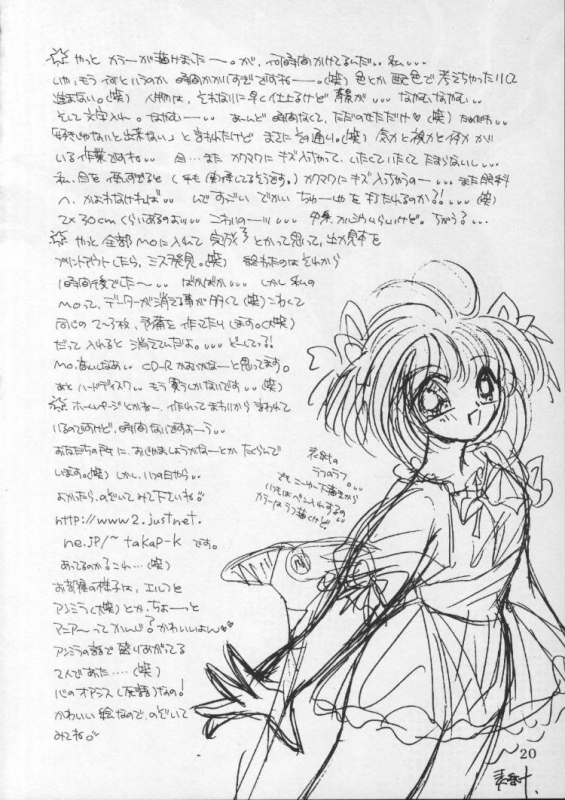 ☆やっと カラーが描けました〜。が、何時間かけてるんだ。私…
いや、もう 何というのか 時間かかりすぎですね〜。(笑) 色とか 配色で 考えちゃったりして
進まない。(笑) 人物は、それなりに早く仕上るけど 背景が… なやむなやむ。
そして文字入れ。なやむ… あーんど 時間なくて、ただのせただけ♥(笑)
「好きじゃないと出来ない」と 言われたけど まさにその通り。(笑)
いる作業ですね。 目…また カクマクに キズ入っちゃって、いたくていたくて たまらないし…
私、目を 使いすぎると (手も関係してるそうです。) カクマクに キズ入っちゃうの〜…また眼科
へ、かよわなければ。 んで すごい でかい ちゅーしゃを 打たれるのかる!…(笑)
2×30cmくらいあるのよ!! こわいのー!!! ちがう…
☆やっと 全部 MOに入れて 完成♪とかって思って、出力見本を
プリントアウトしたら、ミス発見。(笑) 終わったのは それから
1時間後でした〜。 ばかばか… しかし 私の
MOって、データーが消える事が多くて(笑)こわくて
同じの 2〜3枚、予備を 作ってたりします。(大笑)
だって 入れると 消えていたよ。… どーしてっ!
MO高いしなあ。CD-R かおうかなーと 思ってます。
あと ハードディスク。もう 買うしかないです。(笑)
☆ホームページとかねー、作れって まわりから 言われて
いるのですけど、時間ないですよーう。
あなたちの所に、おじゃましようかなーとか たくらんで
います。(笑) しかし、いつの日やら。
よかったら、のぞいて みて 下さいね♡
http://www2.justnet.
ne.jp/~takap-k です。
あってるのかる これ…(笑)
お部屋の様子は、エルフと
アンミラ(大笑)とか、ちょーっと
マニア〜って かんじ? かわいいよん♥
アンミラの話で 盛りあがってる
てんであた…(笑)
心の オアシス(死語)なの!
かわいい 絵なので、のぞいて
みてね♡
表紙の
ラフのラフ。
いつもはペン入れするの
カラーはラフ描くけど。
20